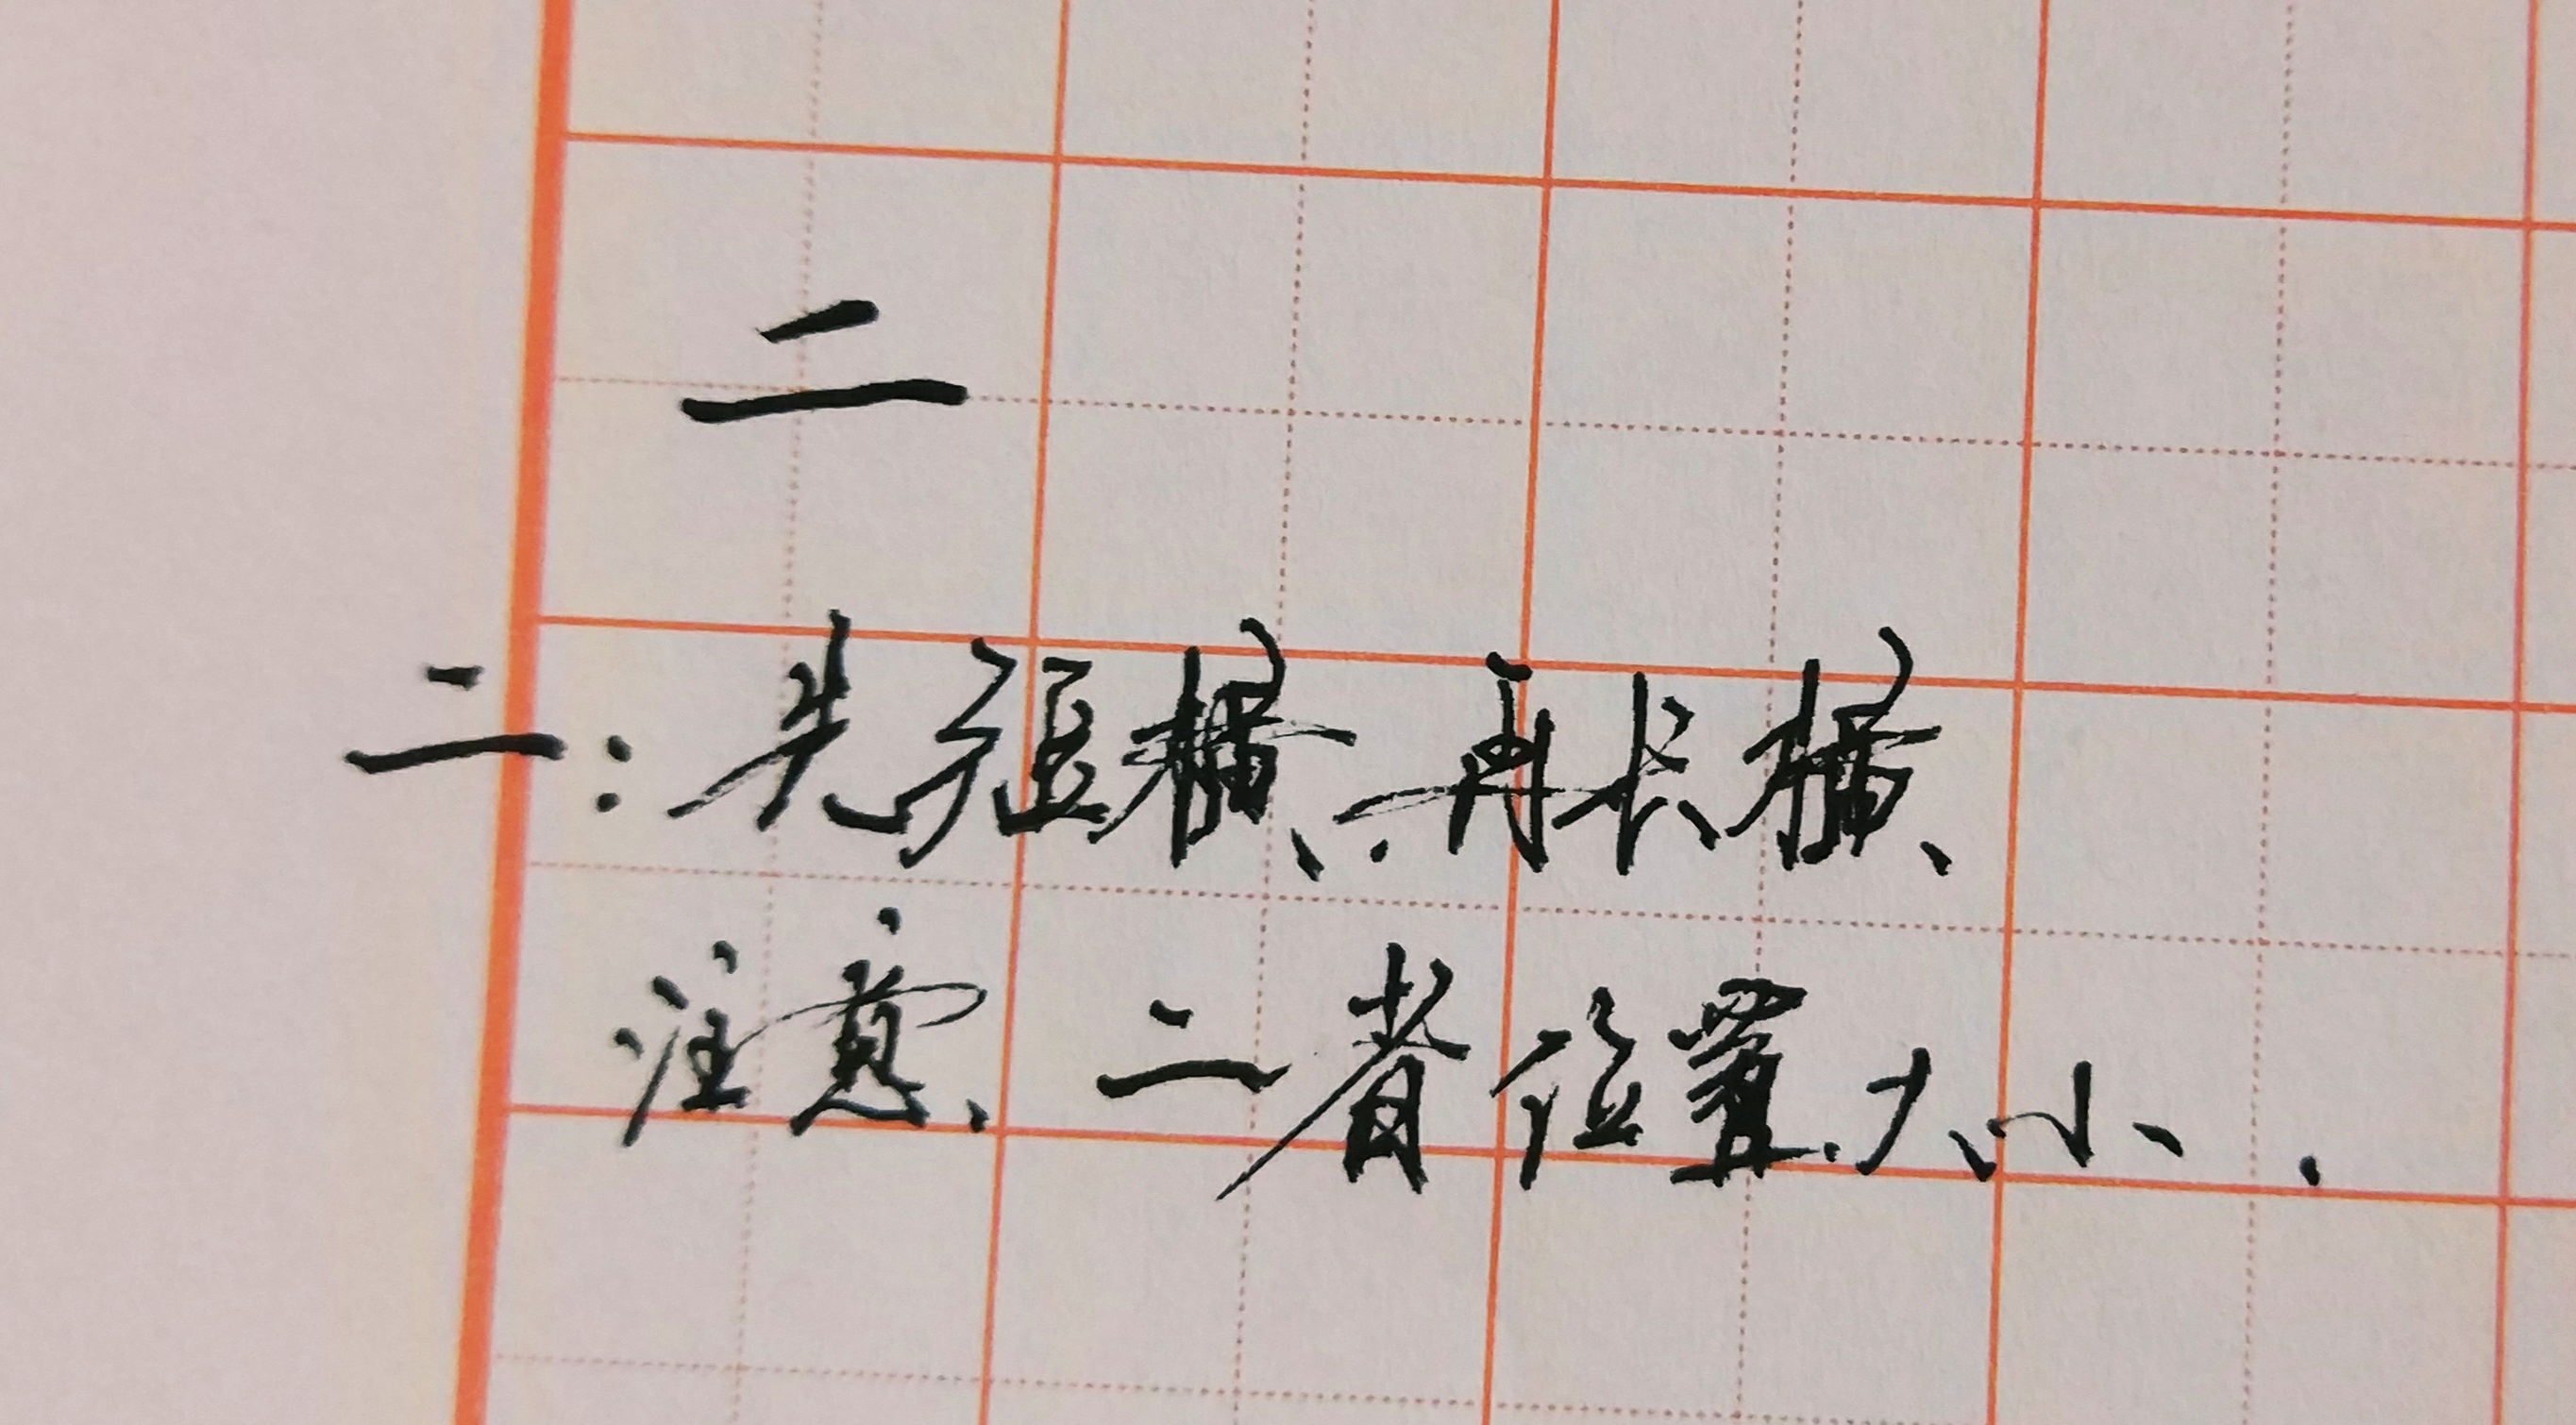 二
二：先短横、再长横、
注意、二者位置、大小.